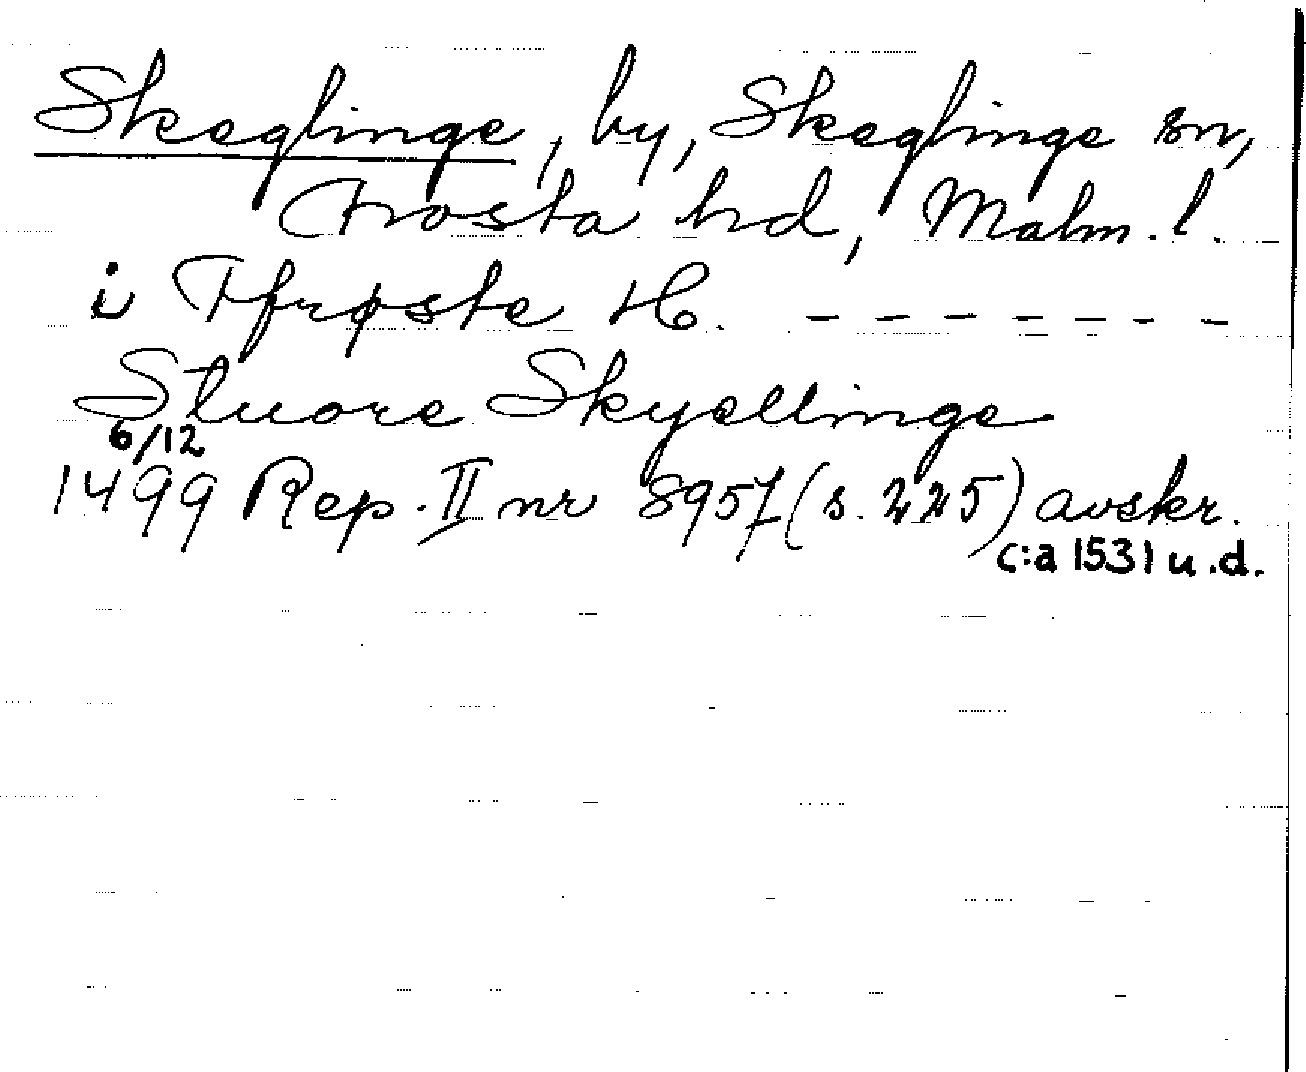 Skeglinge, by, Skeglinge sn,
Frosta hd, Malm. l.
i Tfrøste H. - - - - - - - -
Stuore Skyellinge
6/12
1499 Rep. II nr 8957 (s. 225) avskr.
c:a 1531 u.d.